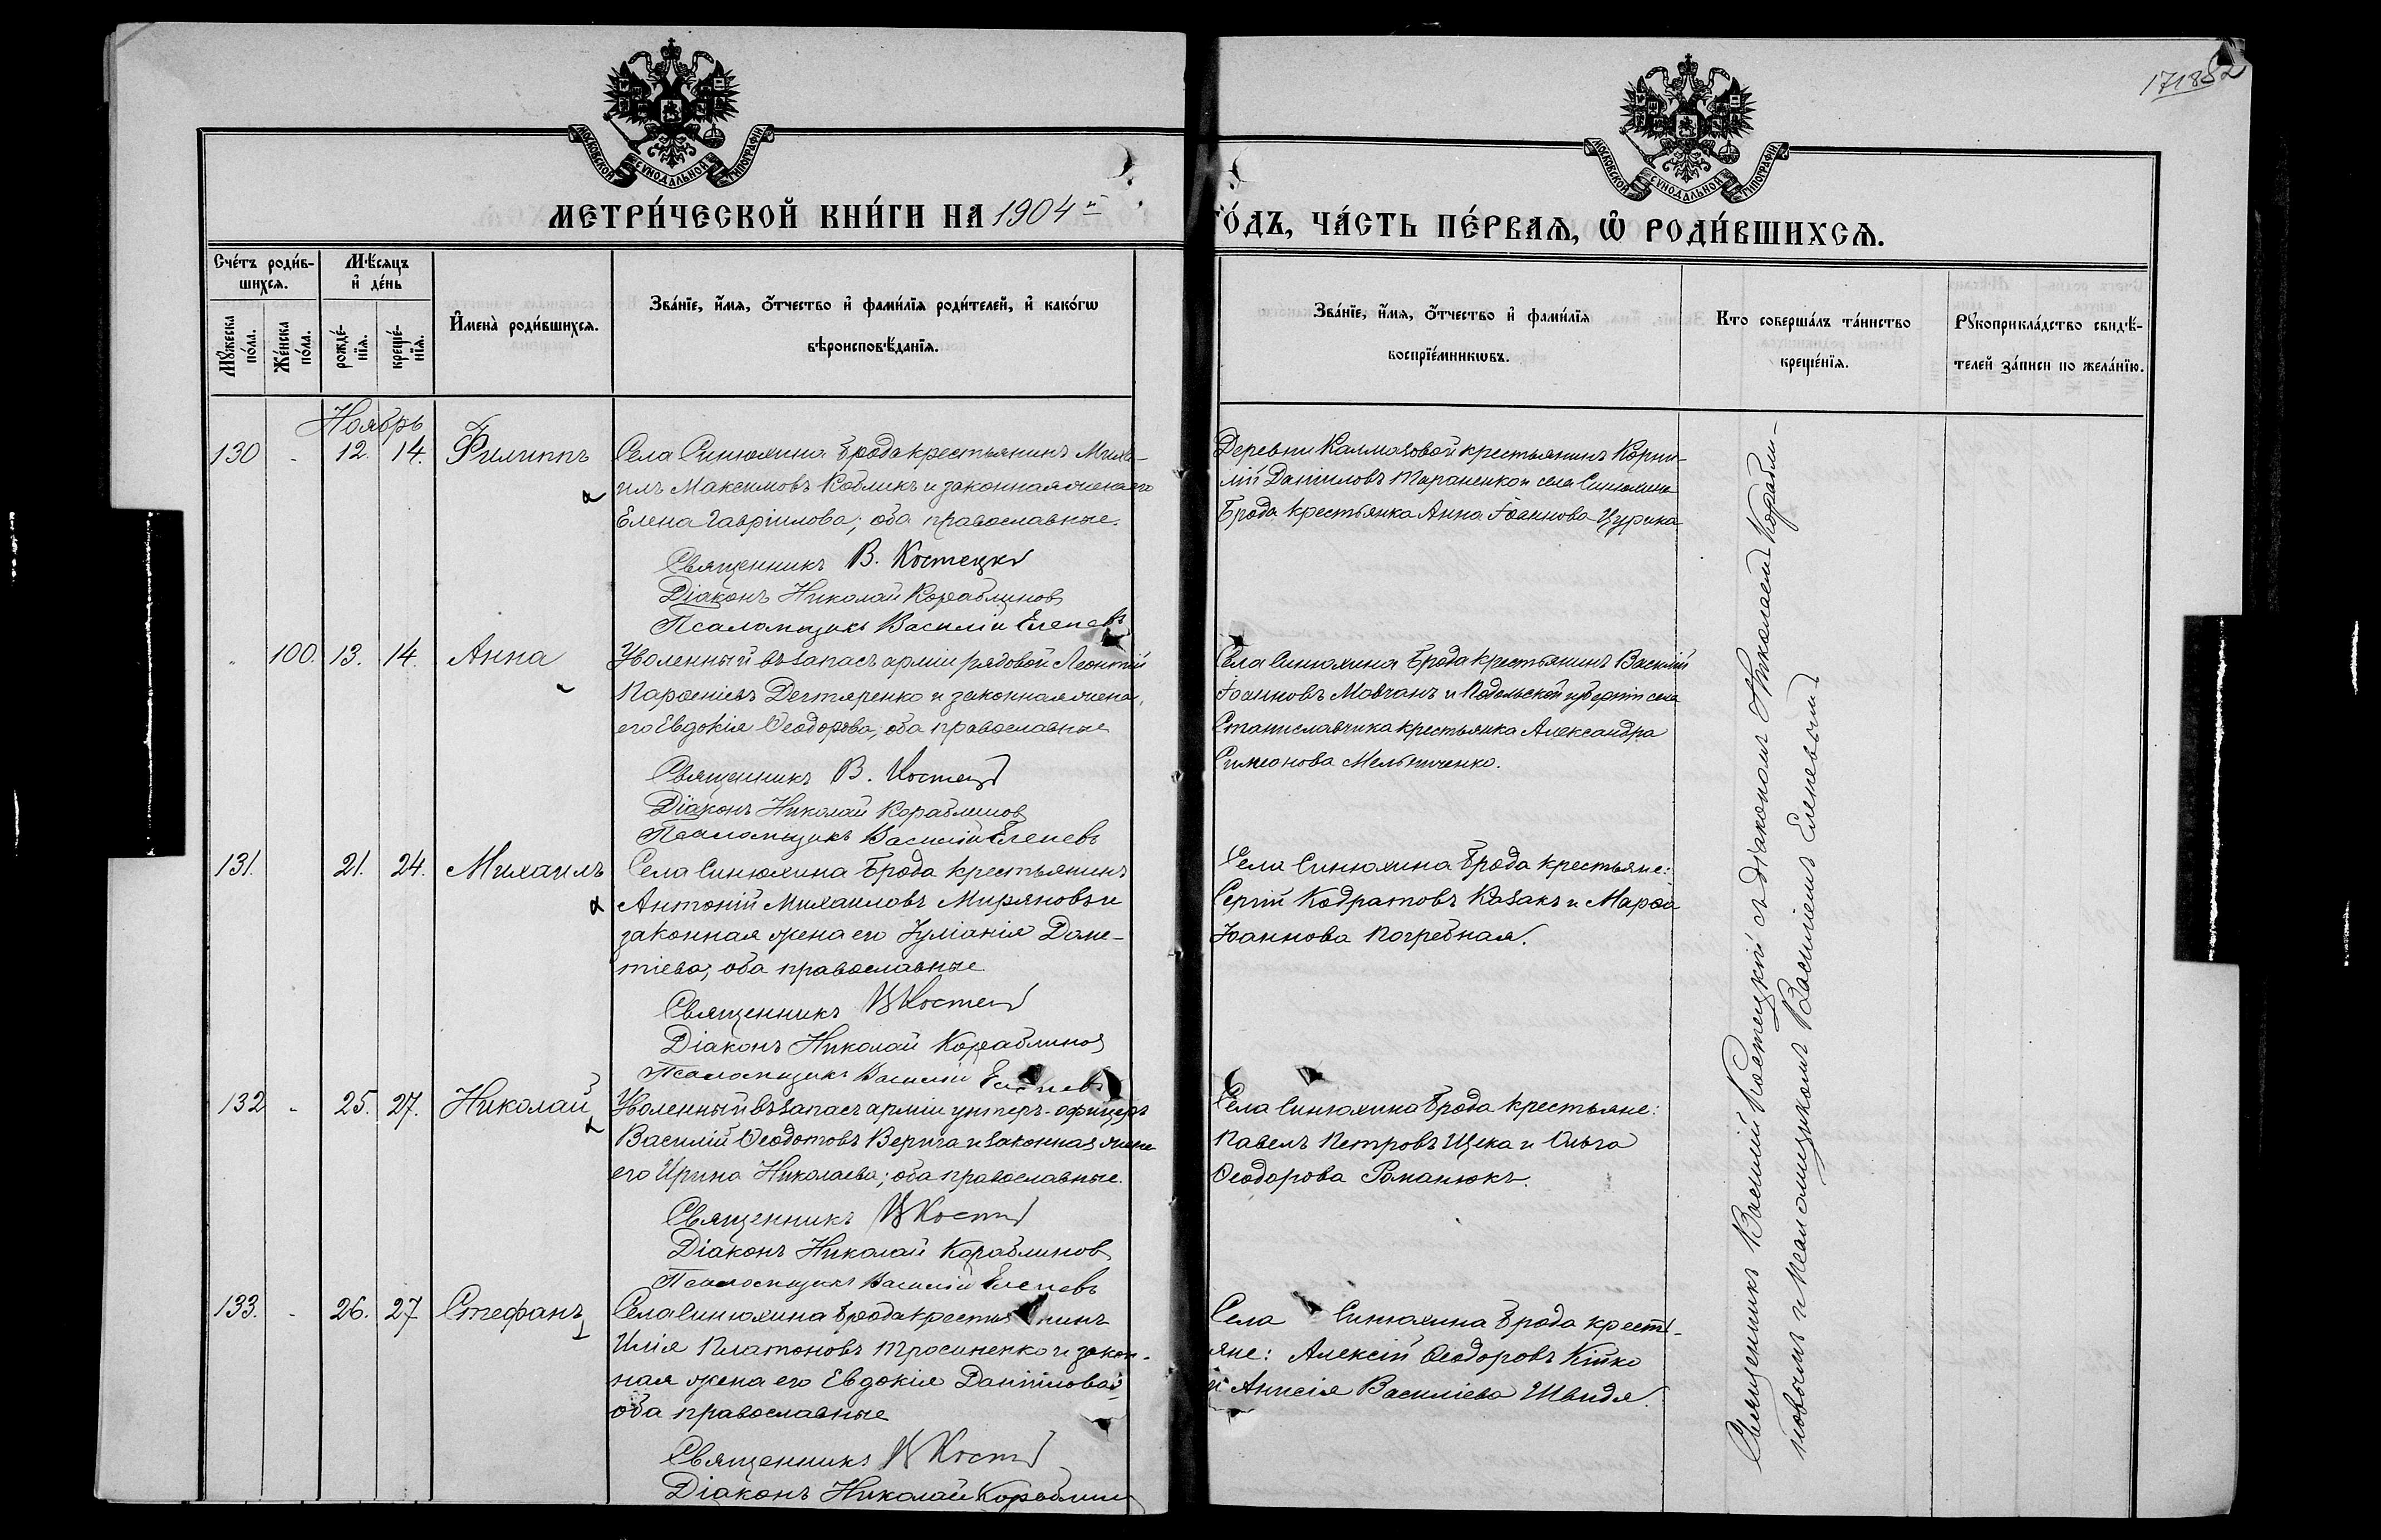 171882
МОСКОВСКОЙ СѴНОДАЛЬНОЙ ТИПОГРАФІИ
МОСКОВСКОЙ СѴНОДАЛЬНОЙ ТИПОГРАФІИ
МЕТРИ́ЧЕСКОЙ КНИ́ГИ НА 1904 й
ГО́ДЪ, ЧА́СТЬ ПЕ́РВАѦ, Ѡ҆ РОДИ́ВШИХСѦ.
Сче́тъ роди́в-
шихсѧ.
Мꙋжеска по́ла.
Же́нска по́ла.
Мѣ́сѧцъ
и҆ де́нь
рожде́-
нїѧ.
креще́-
нїѧ.
И҆мена̀ роди́вшихсѧ.
Зва́нїе, и҆́мѧ, ѻ҆́тчество и҆ фами́лїѧ роди́телей, и҆ како́гѡ
вѣроисповѣ́данїѧ.
Зва́нїе, и҆́мѧ, ѻ҆́тчество и҆ фами́лїѧ
воспрїе́мникѡвъ.
Кто соверша́лъ та́инство
креще́нїѧ.
Рꙋкоприкла́дство свидѣ́-
телей за́писи по жела́нїю.
Ноябрь
130 - 12. 14. Филиппъ
Села Синюхина Брода крестьянинъ Миха-
илъ Максимовъ Кобликъ и законная жена его
Елена Гавріилова; оба православные.
Священникъ В. Костецкі
Діаконъ Николай Кораблинов
Псаломщикъ Василій Елепевъ
Деревни Калмазовой крестьянинъ Корни-
лій Даніиловъ Тараненко и села Синюхина
Брода крестьянка Анна Іоаннова Цурика
" 100. 13. 14. Анна
Уволенный въ запасъ арміи рядовой Леонтій
Парѳеніевъ Дегтяренко и законная жена
его Евдокія Ѳеодорова, оба православные
Священникъ В. Костец
Діаконъ Николай Кораблинов
Псаломщикъ Василій Елепевъ
Села Синюхина Брода крестьянинъ Василій
Іоанновъ Мовчанъ и Подольской губерніи села
Станиславчика крестьянка Александра
Симеонова Мельниченко.
131. 21. 24. Михаилъ
Села Синюхина Брода крестьянинъ
Антоній Михаиловъ Миряновъ и
законная жена его Іуліанія Доме-
тіева; оба православные
Священникъ В Костец
Діаконъ Николай Кораблинов
Псаломщикъ Василій Елепевъ
Села Синюхина Брода крестьяне:
Сергій Кодратовъ Казакъ и Марѳа
Іоаннова Погребная.
132 - 25. 27. Николай
Уволенный въ запасъ арміи унтеръ-офицеръ
Василій Ѳеодотовъ Верига и законная жена
его Ирина Николаева; оба православные.
Священникъ В Кост
Діаконъ Николай Кораблинов
Псаломщикъ Василій Елепевъ
Села Синюхина Брода крестьяне:
Павелъ Петровъ Щека и Ольга
Ѳеодорова Романюкъ.
133. - 26. 27 Стефанъ
Села Синюхина Брода крестьянинъ
Илія Платоновъ Тросиненко и закон-
ная жена его Евдокія Даніилова;
оба православные
Священникъ В Кост
Діаконъ Николай Кораблин
Села Синюхина Брода кресть-
яне: Алексій Ѳеодоровъ Кійко
и Анисія Василіева Швидя.
Священникъ Василій Костецкій съ діакономъ Николаемъ Корабли-
новымъ и псаломщикомъ Василіемъ Елепевымъ